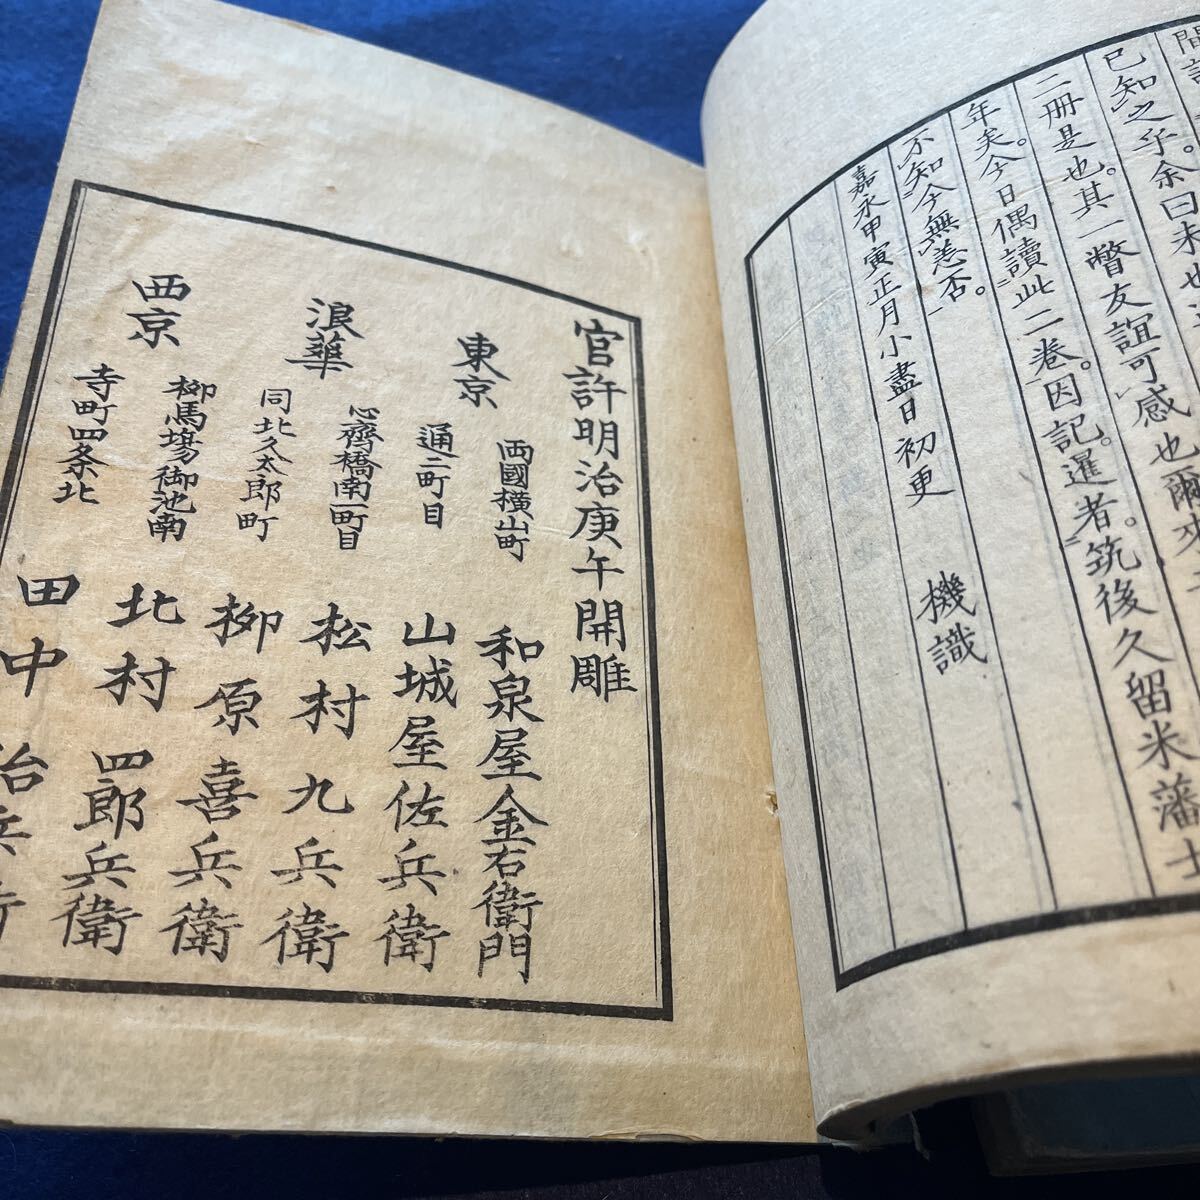 已知之乎。余曰未也
二冊是也。其一瞥友誼可感也爾來
年矣。今日偶讀此二卷。因記。暹者。筑後久留米藩士
不知今無恙否。
嘉永甲寅正月小盡日初更 機識
官許明治庚午開雕
東京 両國横山町 和泉屋金右衛門
通二町目 山城屋佐兵衛
浪華 心齋橋南一町目 松村九兵衛
同北久太郎町 柳原喜兵衛
西京 柳馬場御池南 北村四郎兵衛
寺町四条北 田中治兵衛